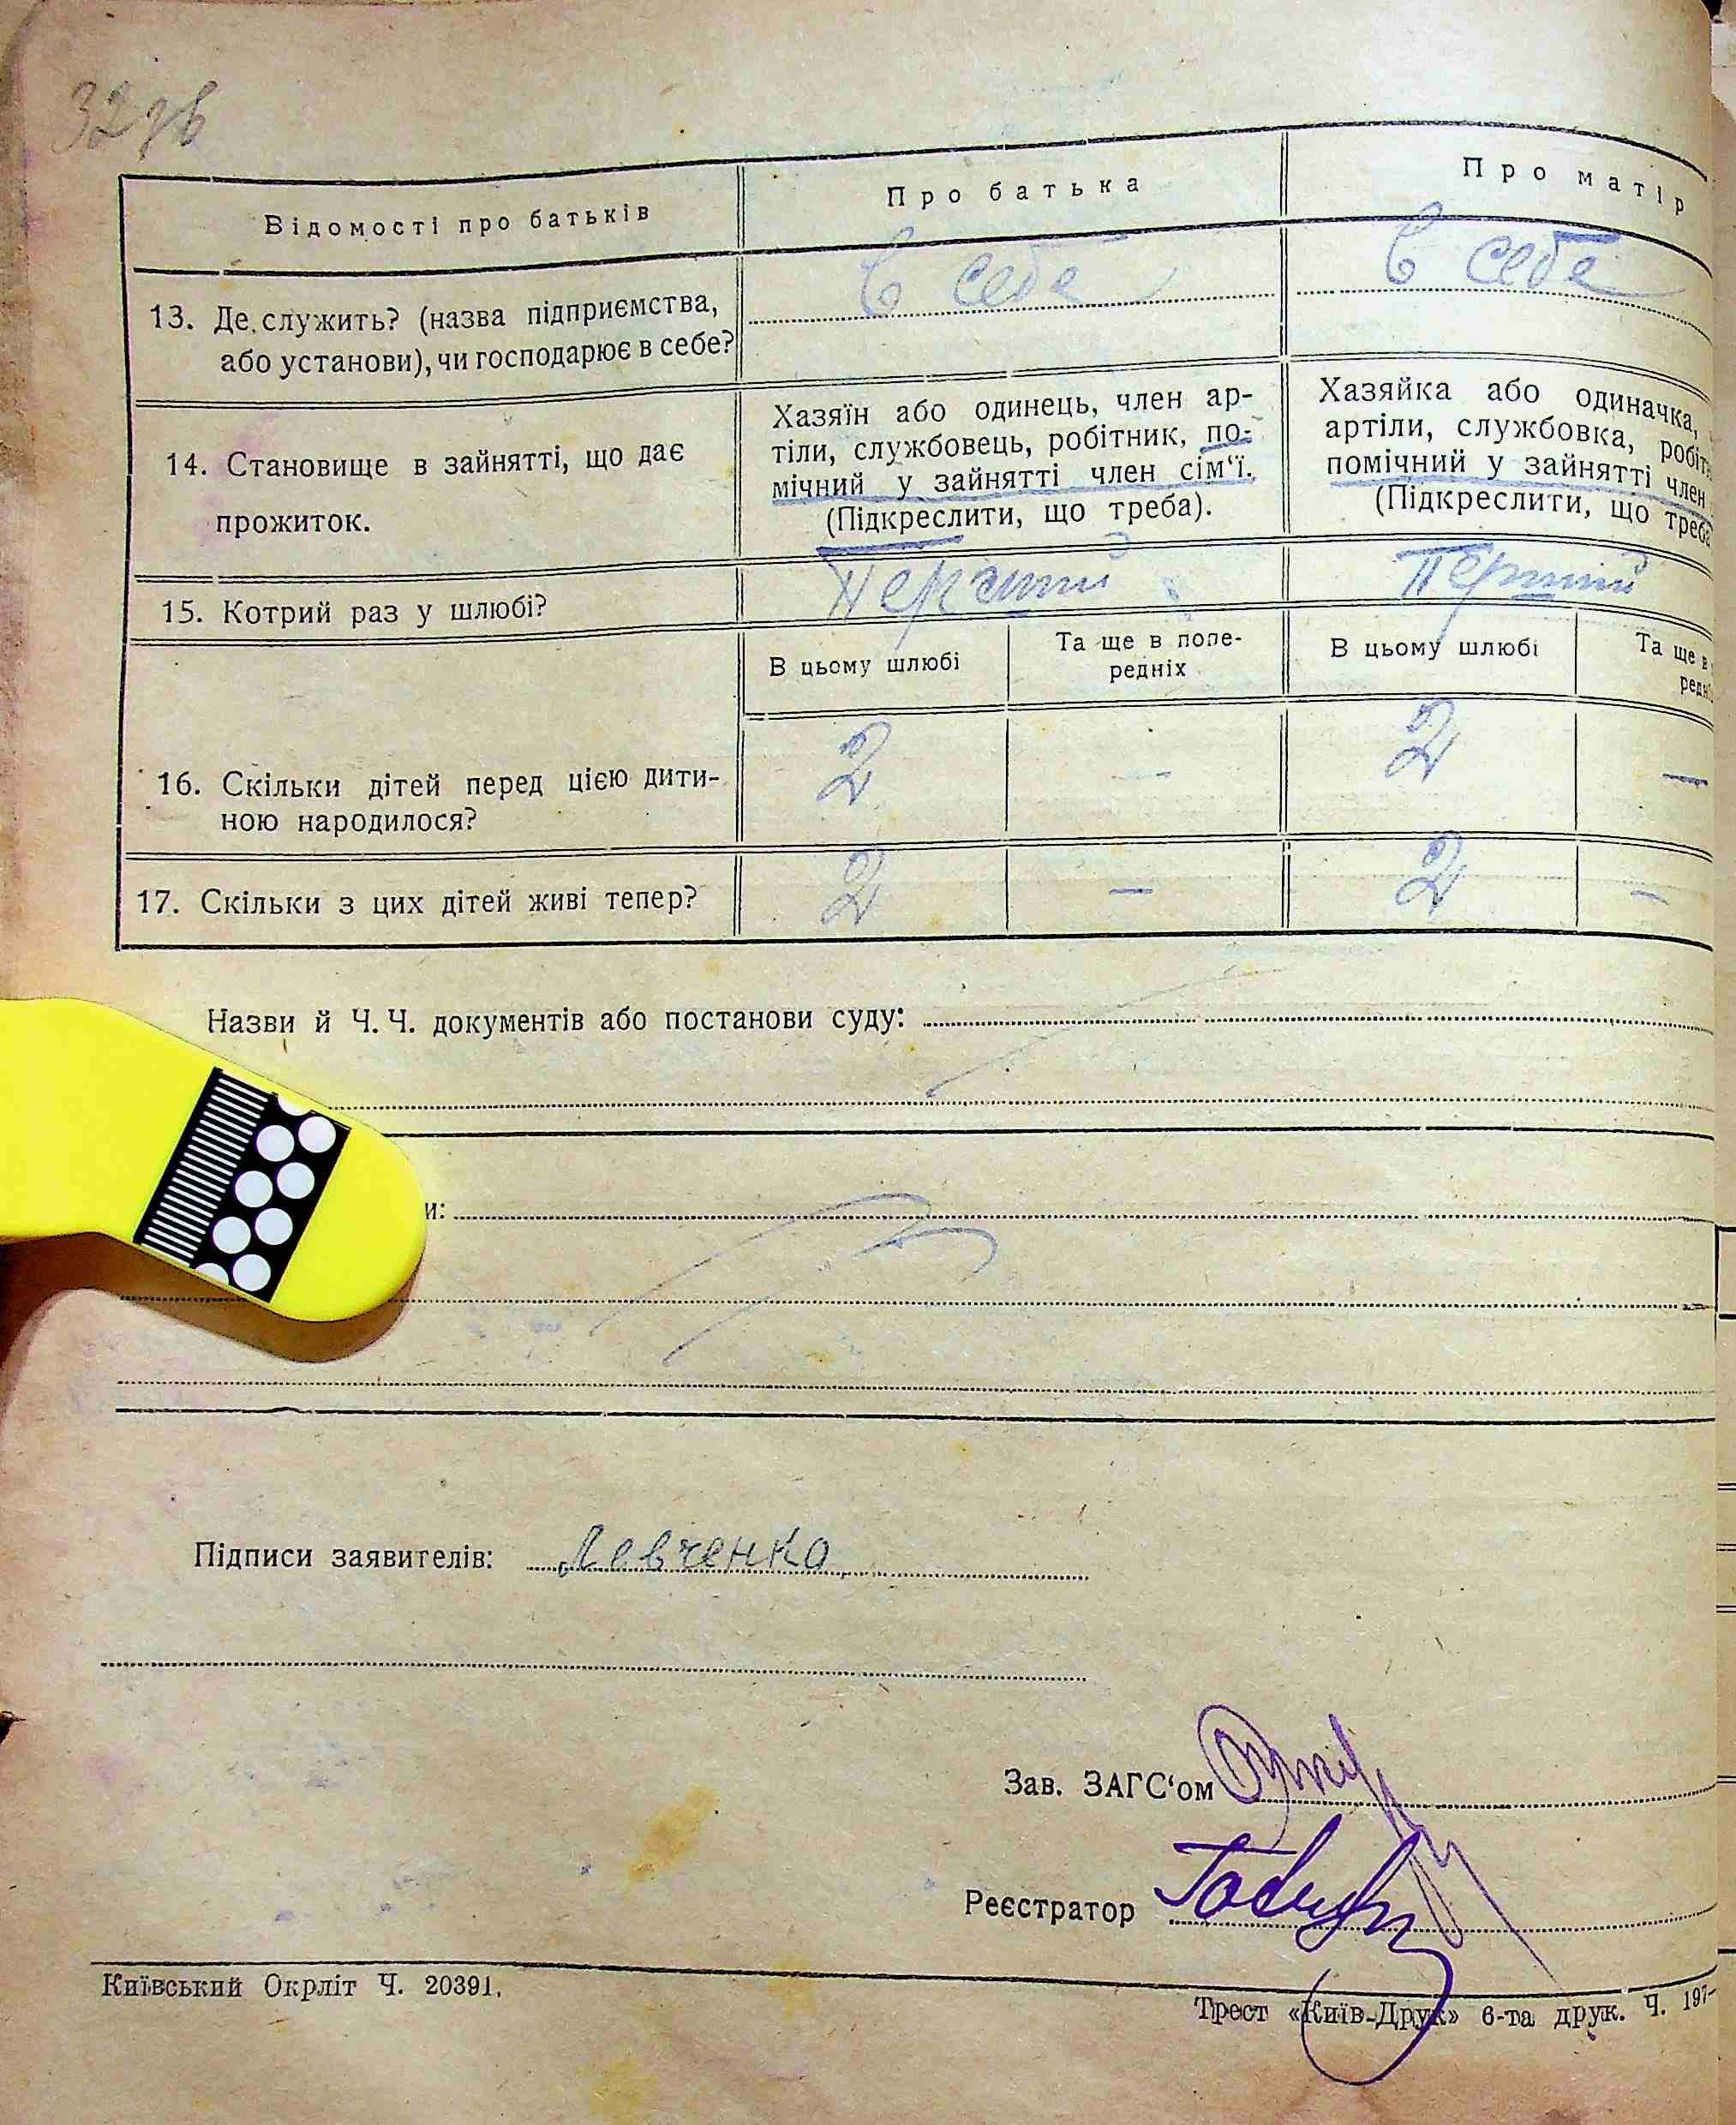 32 зв
Відомості про батьків
Про батька
Про матір
13. Де служить? (назва підприємства,
або установи), чи господарює в себе?
В себе
В себе
14. Становище в зайнятті, що дає
прожиток.
Хазяїн або одинець, член ар-
тіли, службовець, робітник, по-
мічний у зайнятті член сім‘ї.
(Підкреслити, що треба).
Хазяйка або одиначка,
артіли, службовка, робіт
помічний у зайнятті член
(Підкреслити, що треба
15. Котрий раз у шлюбі?
Перший
Перший
В цьому шлюбі
Та ще в попе-
редніх
В цьому шлюбі
Та ще в
редн
16. Скільки дітей перед цією дити-
ною народилося?
2 - 2 -
17. Скільки з цих дітей живі тепер?
2 - 2 -
Назви й Ч. Ч. документів або постанови суду:
и:
Підписи заявителів: Левченко
Зав. ЗАГС‘ом
Реєстратор
Київський Окрліт Ч. 20391.
Трест «Київ-Друк» 6-та друк. Ч. 197-